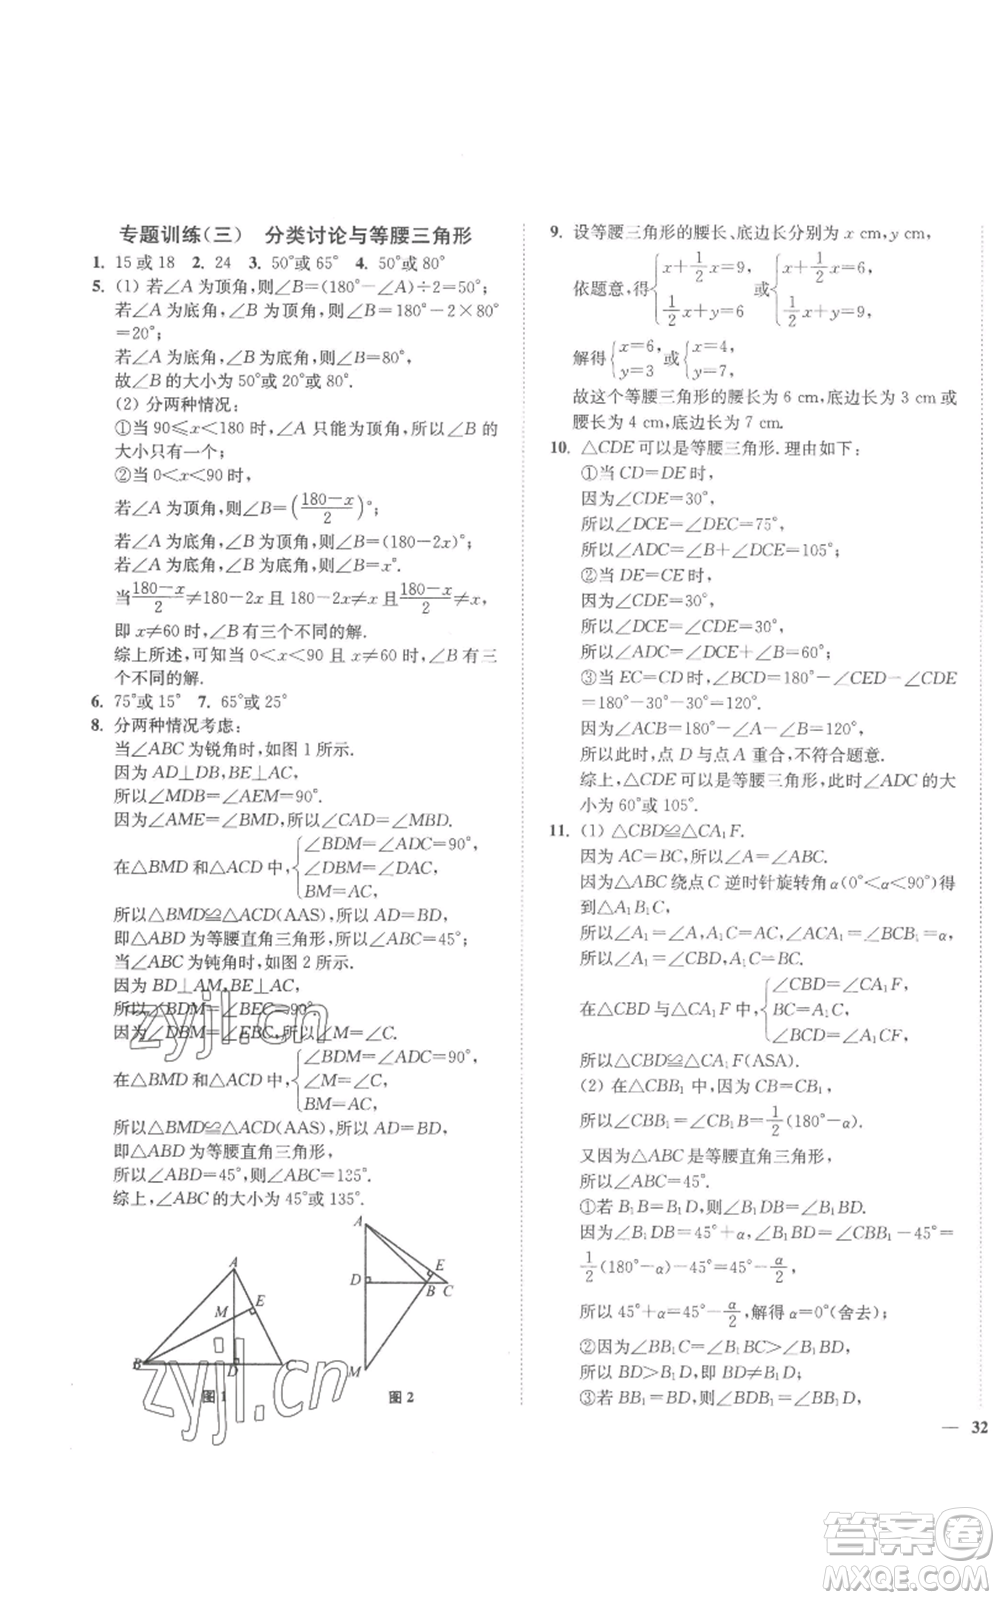 专题训练(三) 分类讨论与等腰三角形
1. 15或18 2. 24 3. 50°或65° 4. 50°或80°
5. (1) 若∠A为顶角,则∠B=(180°-∠A)÷2=50°;
若∠A为底角,∠B为顶角,则∠B=180°-2×80°
=20°;
若∠A为底角,∠B为底角,则∠B=80°,
故∠B的大小为50°或20°或80°.
(2) 分两种情况:
①当90≤x<180时,∠A只能为顶角,所以∠B的
大小只有一个;
②当0<x<90时,
若∠A为顶角,则∠B=((180-x)/2)°;
若∠A为底角,∠B为顶角,则∠B=(180-2x)°;
若∠A为底角,∠B为底角,则∠B=x°.
当(180-x)/2≠180-2x且180-2x≠x且(180-x)/2≠x,
即x≠60时,∠B有三个不同的解.
综上所述,可知当0<x<90且x≠60时,∠B有三
个不同的解.
6. 75°或15° 7. 65°或25°
8. 分两种情况考虑:
当∠ABC为锐角时,如图1所示.
因为AD⊥DB,BE⊥AC,
所以∠MDB=∠AEM=90°.
因为∠AME=∠BMD,所以∠CAD=∠MBD.
在△BMD和△ACD中,{∠BDM=∠ADC=90°,
∠DBM=∠DAC,
BM=AC,
所以△BMD≌△ACD(AAS),所以AD=BD,
即△ABD为等腰直角三角形,所以∠ABC=45°;
当∠ABC为钝角时,如图2所示.
因为BD⊥AM,BE⊥AC,
所以∠BDM=∠BEC=90°.
因为∠DBM=∠EBC,所以∠M=∠C.
在△BMD和△ACD中,{∠BDM=∠ADC=90°,
∠M=∠C,
BM=AC,
所以△BMD≌△ACD(AAS),所以AD=BD,
即△ABD为等腰直角三角形,
所以∠ABD=45°,则∠ABC=135°.
综上,∠ABC的大小为45°或135°.
A
M
E
B
D
图1
A
D
E
B C
M
图2
9. 设等腰三角形的腰长、底边长分别为x cm,y cm,
依题意,得{x+1/2x=9, 1/2x+y=6 或{x+1/2x=6, 1/2x+y=9,
解得{x=6, y=3 或{x=4, y=7,
故这个等腰三角形的腰长为6 cm,底边长为3 cm或
腰长为4 cm,底边长为7 cm.
10. △CDE可以是等腰三角形.理由如下:
①当CD=DE时,
因为∠CDE=30°,
所以∠DCE=∠DEC=75°,
所以∠ADC=∠B+∠DCE=105°;
②当DE=CE时,
因为∠CDE=30°,
所以∠DCE=∠CDE=30°,
所以∠ADC=∠DCE+∠B=60°;
③当EC=CD时,∠BCD=180°-∠CED-∠CDE
=180°-30°-30°=120°.
因为∠ACB=180°-∠A-∠B=120°,
所以此时,点D与点A重合,不符合题意.
综上,△CDE可以是等腰三角形,此时∠ADC的大
小为60°或105°.
11. (1) △CBD≌△CA₁F.
因为AC=BC,所以∠A=∠ABC.
因为△ABC绕点C逆时针旋转角α(0°<α<90°)得
到△A₁B₁C,
所以∠A₁=∠A,A₁C=AC,∠ACA₁=∠BCB₁=α,
所以∠A₁=∠CBD,A₁C=BC.
在△CBD与△CA₁F中,{∠CBD=∠CA₁F,
BC=A₁C,
∠BCD=∠A₁CF,
所以△CBD≌△CA₁F(ASA).
(2) 在△CBB₁中,因为CB=CB₁,
所以∠CBB₁=∠CB₁B=1/2(180°-α).
又因为△ABC是等腰直角三角形,
所以∠ABC=45°.
①若B₁B=B₁D,则∠B₁DB=∠B₁BD.
因为∠B₁DB=45°+α,∠B₁BD=∠CBB₁-45°=
1/2(180°-α)-45°=45°-α/2,
所以45°+α=45°-α/2,解得α=0°(舍去);
②因为∠BB₁C=∠B₁BC>∠B₁BD,
所以BD>B₁D,即BD≠B₁D;
③若BB₁=BD,则∠BDB₁=∠BB₁D,
— 32
zyjl.cn
zyjl.cn
答案卷
MXQE.COM